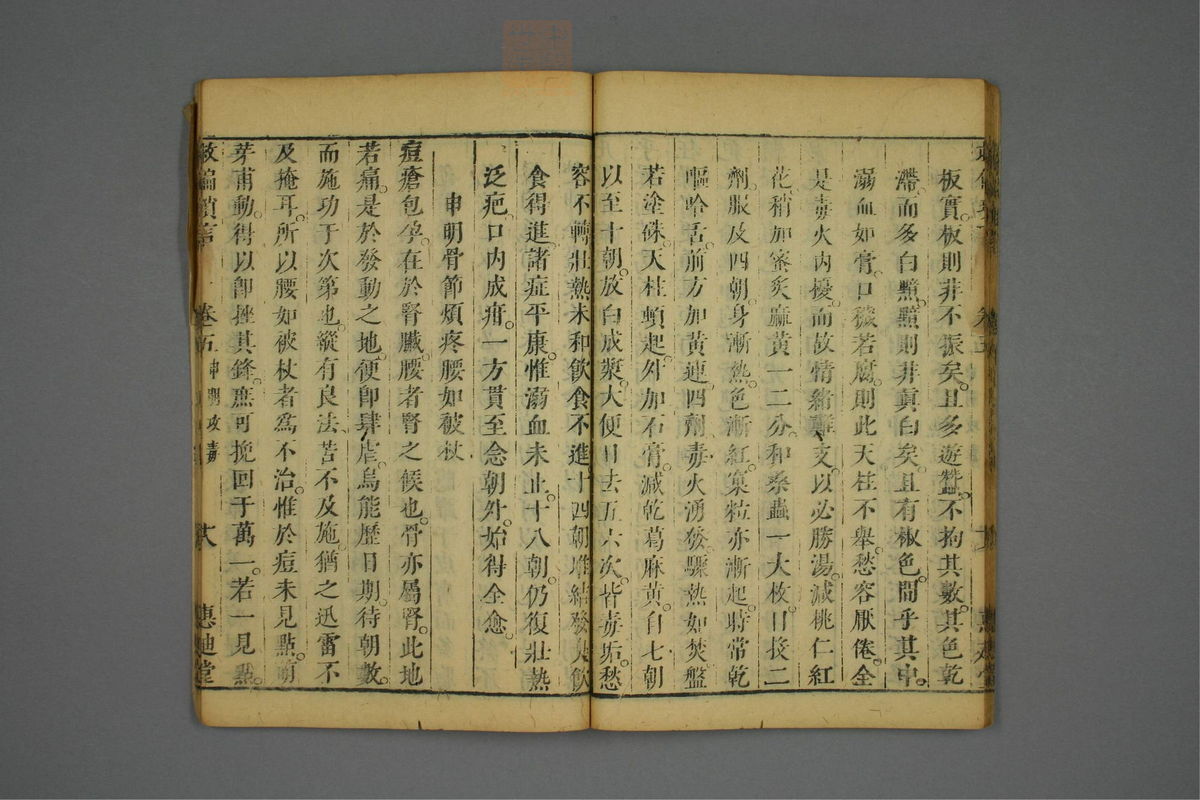 板實。板則非不振矣。且多遊蠶。不拘其數。其色乾
滯。而多白顆。顆則非眞白矣。且有椒色。間乎其中。
溺血如膏。口穢若腐。則此天柱不舉。愁容厭倦。全
是毒火內擾。而故情緒難支。以必勝湯。減桃仁紅
花。稍加蜜炙麻黃一二分。和桑蟲一大枚。日投二
劑。服及四朝。身漸熱。色漸紅。窠粒亦漸起。時常乾
嘔。哈舌。前方加黃連。四劑。毒火湧發。驟熱如焚。盤
若塗硃。天柱頓起。外加石膏。減乾葛麻黃。自七朝
以至十朝。放白成漿。大便日去五六次。皆毒垢。愁
容不轉。壯熱未和。飲食不進。十四朝堆結發臭。飲
食得進。諸症平康。惟溺血未止。十八朝。仍復壯熱
泛疤。口內成疳。一方貫至念朝外。始得全愈。
申明骨節煩疼腰如被杖
痘瘡包孕。在於腎臟。腰者腎之候也。骨亦屬腎。此地
若痛。是於發動之地。便卽肆虐。烏能歷日期。待朝數。
而施功于次第也。縱有良法。苦不及施。猶之迅雷不
及掩耳。所以腰如被杖者爲不治。惟於痘未見點。萌
芽甫動。得以卽挫其鋒。庶可挽回于萬一。若一見點。
救偏瑣言 卷五 申明攻毒 六 惠迪堂